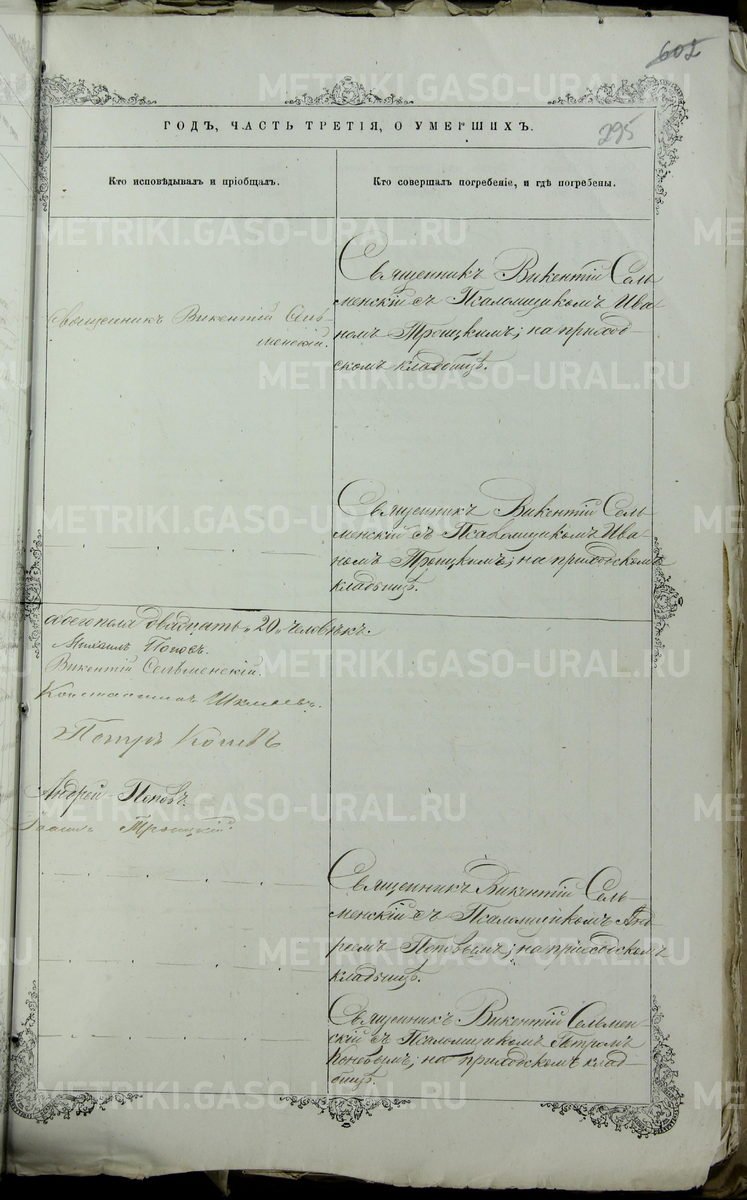 602
295
ГОДЪ, ЧАСТЬ ТРЕТІЯ, О УМЕРШИХЪ.
Кто исповѣдывалъ и пріобщалъ.
Кто совершалъ погребеніе, и гдѣ погребены.
Священникъ Викентій Сель-
менскій.
Священникъ Викентій Сель-
менскій съ Псаломщикомъ Ива-
номъ Троицкимъ; на приход-
скомъ кладбищѣ.
Священникъ Викентій Сель-
менскій съ Псаломщикомъ Ива-
номъ Троицкимъ; на приходскомъ
кладбищѣ.
а обоего пола двадцать "20" человѣкъ.
Михаилъ Поповъ.
Викентій Сельменскій.
Константинъ
Петръ
Андрей Поповъ.
Іоаннъ Троицкій.
Священникъ Викентій Сель-
менскій съ Псаломщикомъ Анд-
реемъ Поповымъ; на приходскомъ
кладбищѣ.
Священникъ Викентій Сельмен-
скій съ Псаломщикомъ Петромъ
на приходскомъ клад-
бищѣ.
METRIKI.GASO-URAL.RU